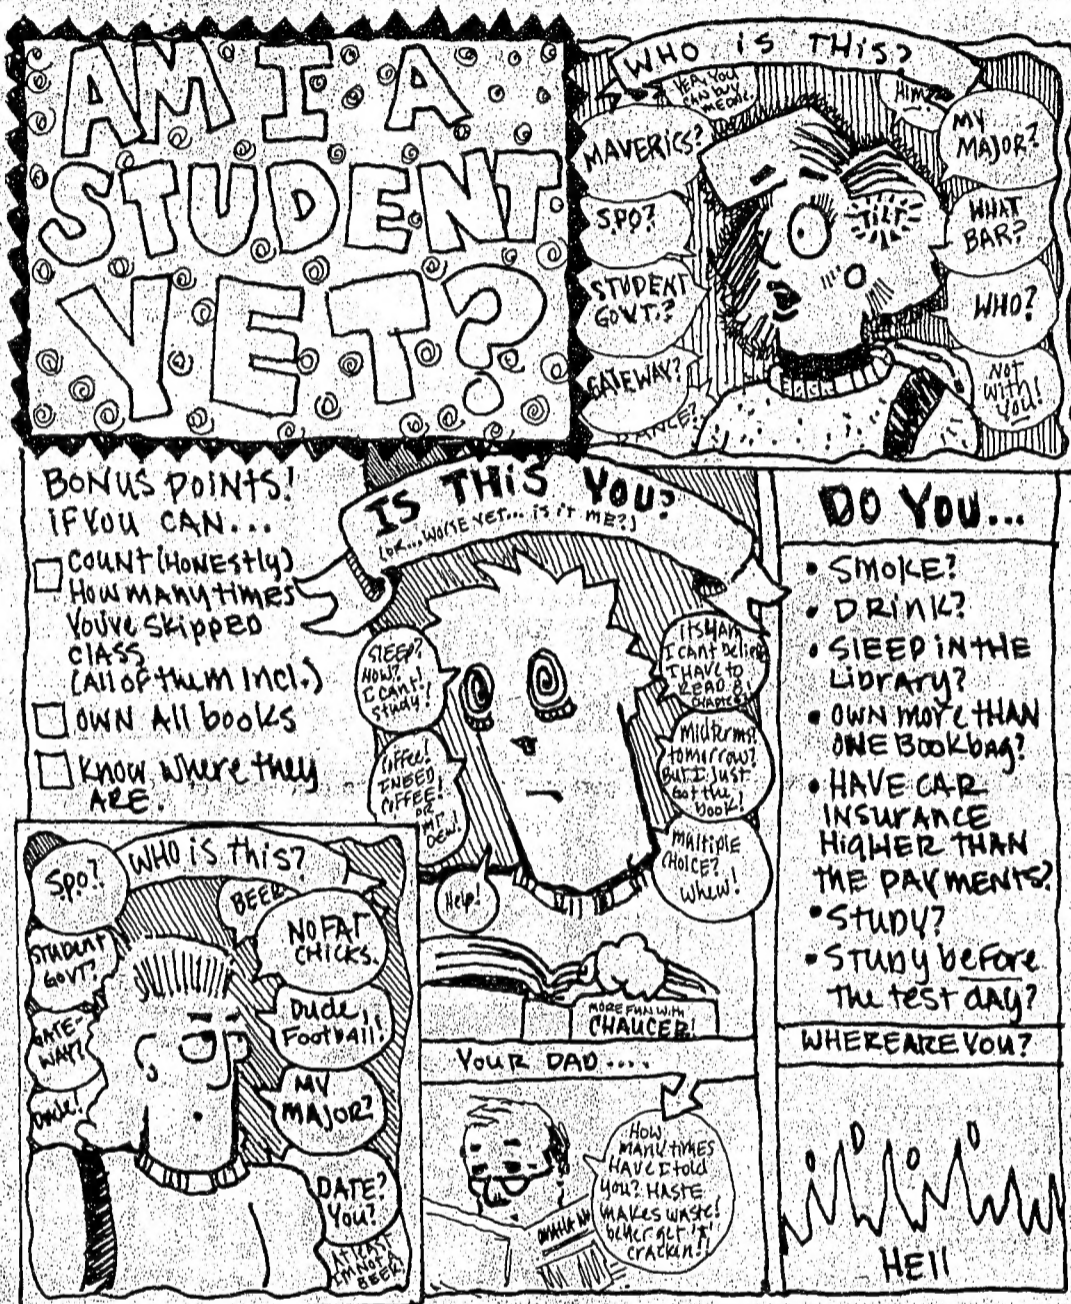 AM I A
STUDENT
YET?
WHO iS THiS?
YEA, YOU
CAN BUY
ME ONE.
HIM?
MAVERICS?
MY
MAJOR?
SPO?
WHAT
BAR?
STUDENT
GOVT.?
WHO?
GATEWAY?
NOT
WITH
YOU!
DANCE?
TILT
BONUS POINTS!
iF YOU CAN...
COUNT (HONESTLY)
HOW MANY TIMES
YOU'VE SKIPPED
CLASS
(All OF THEM INCl.)
OWN All books
KNOW WHERE THEY
ARE.
IS THiS YOU?
(OR...WORSE YET... iS iT ME?)
SlEEP?
NOW?
I CAN'T!
STUDY!
COFFEE!
I NEED
COFFEE!
OR
MT.
DEW!
Help!
I HAVE TO
READ 8
CHAPTERS!
MidTERMS!
tomorrow?
But I Just
Got the
book!
MUlTiPlE
CHOiCE?
WHEW!
MORE FUN WITH
CHAUCER!
DO YOU...
• SMOKE?
• DRiNK?
• SlEEP iN THE
LiBRARY?
• OWN MORE THAN
ONE BOOKBAG?
• HAVE CAR
INSURANCE
HiGHER THAN
THE PAYMENTS?
• STUDY?
• STUDY before
THE TEST DAY?
WHERE ARE YOU?
HEll
WHO iS THiS?
SPO?
BEER
STUDENT
GOVT?
NO FAT
CHICKS.
GATE-
WAY?
Dude,
Football!
Dude!
MY
MAJOR?
DATE?
YOU?
AT LEAST
I'M NOT A
BEER!
YOUR DAD....
HOW
MANY TIMES
HAVE I told
YOU? HASTE
MAKES WASTE!
better get 'r
crackin!!
OMAHA